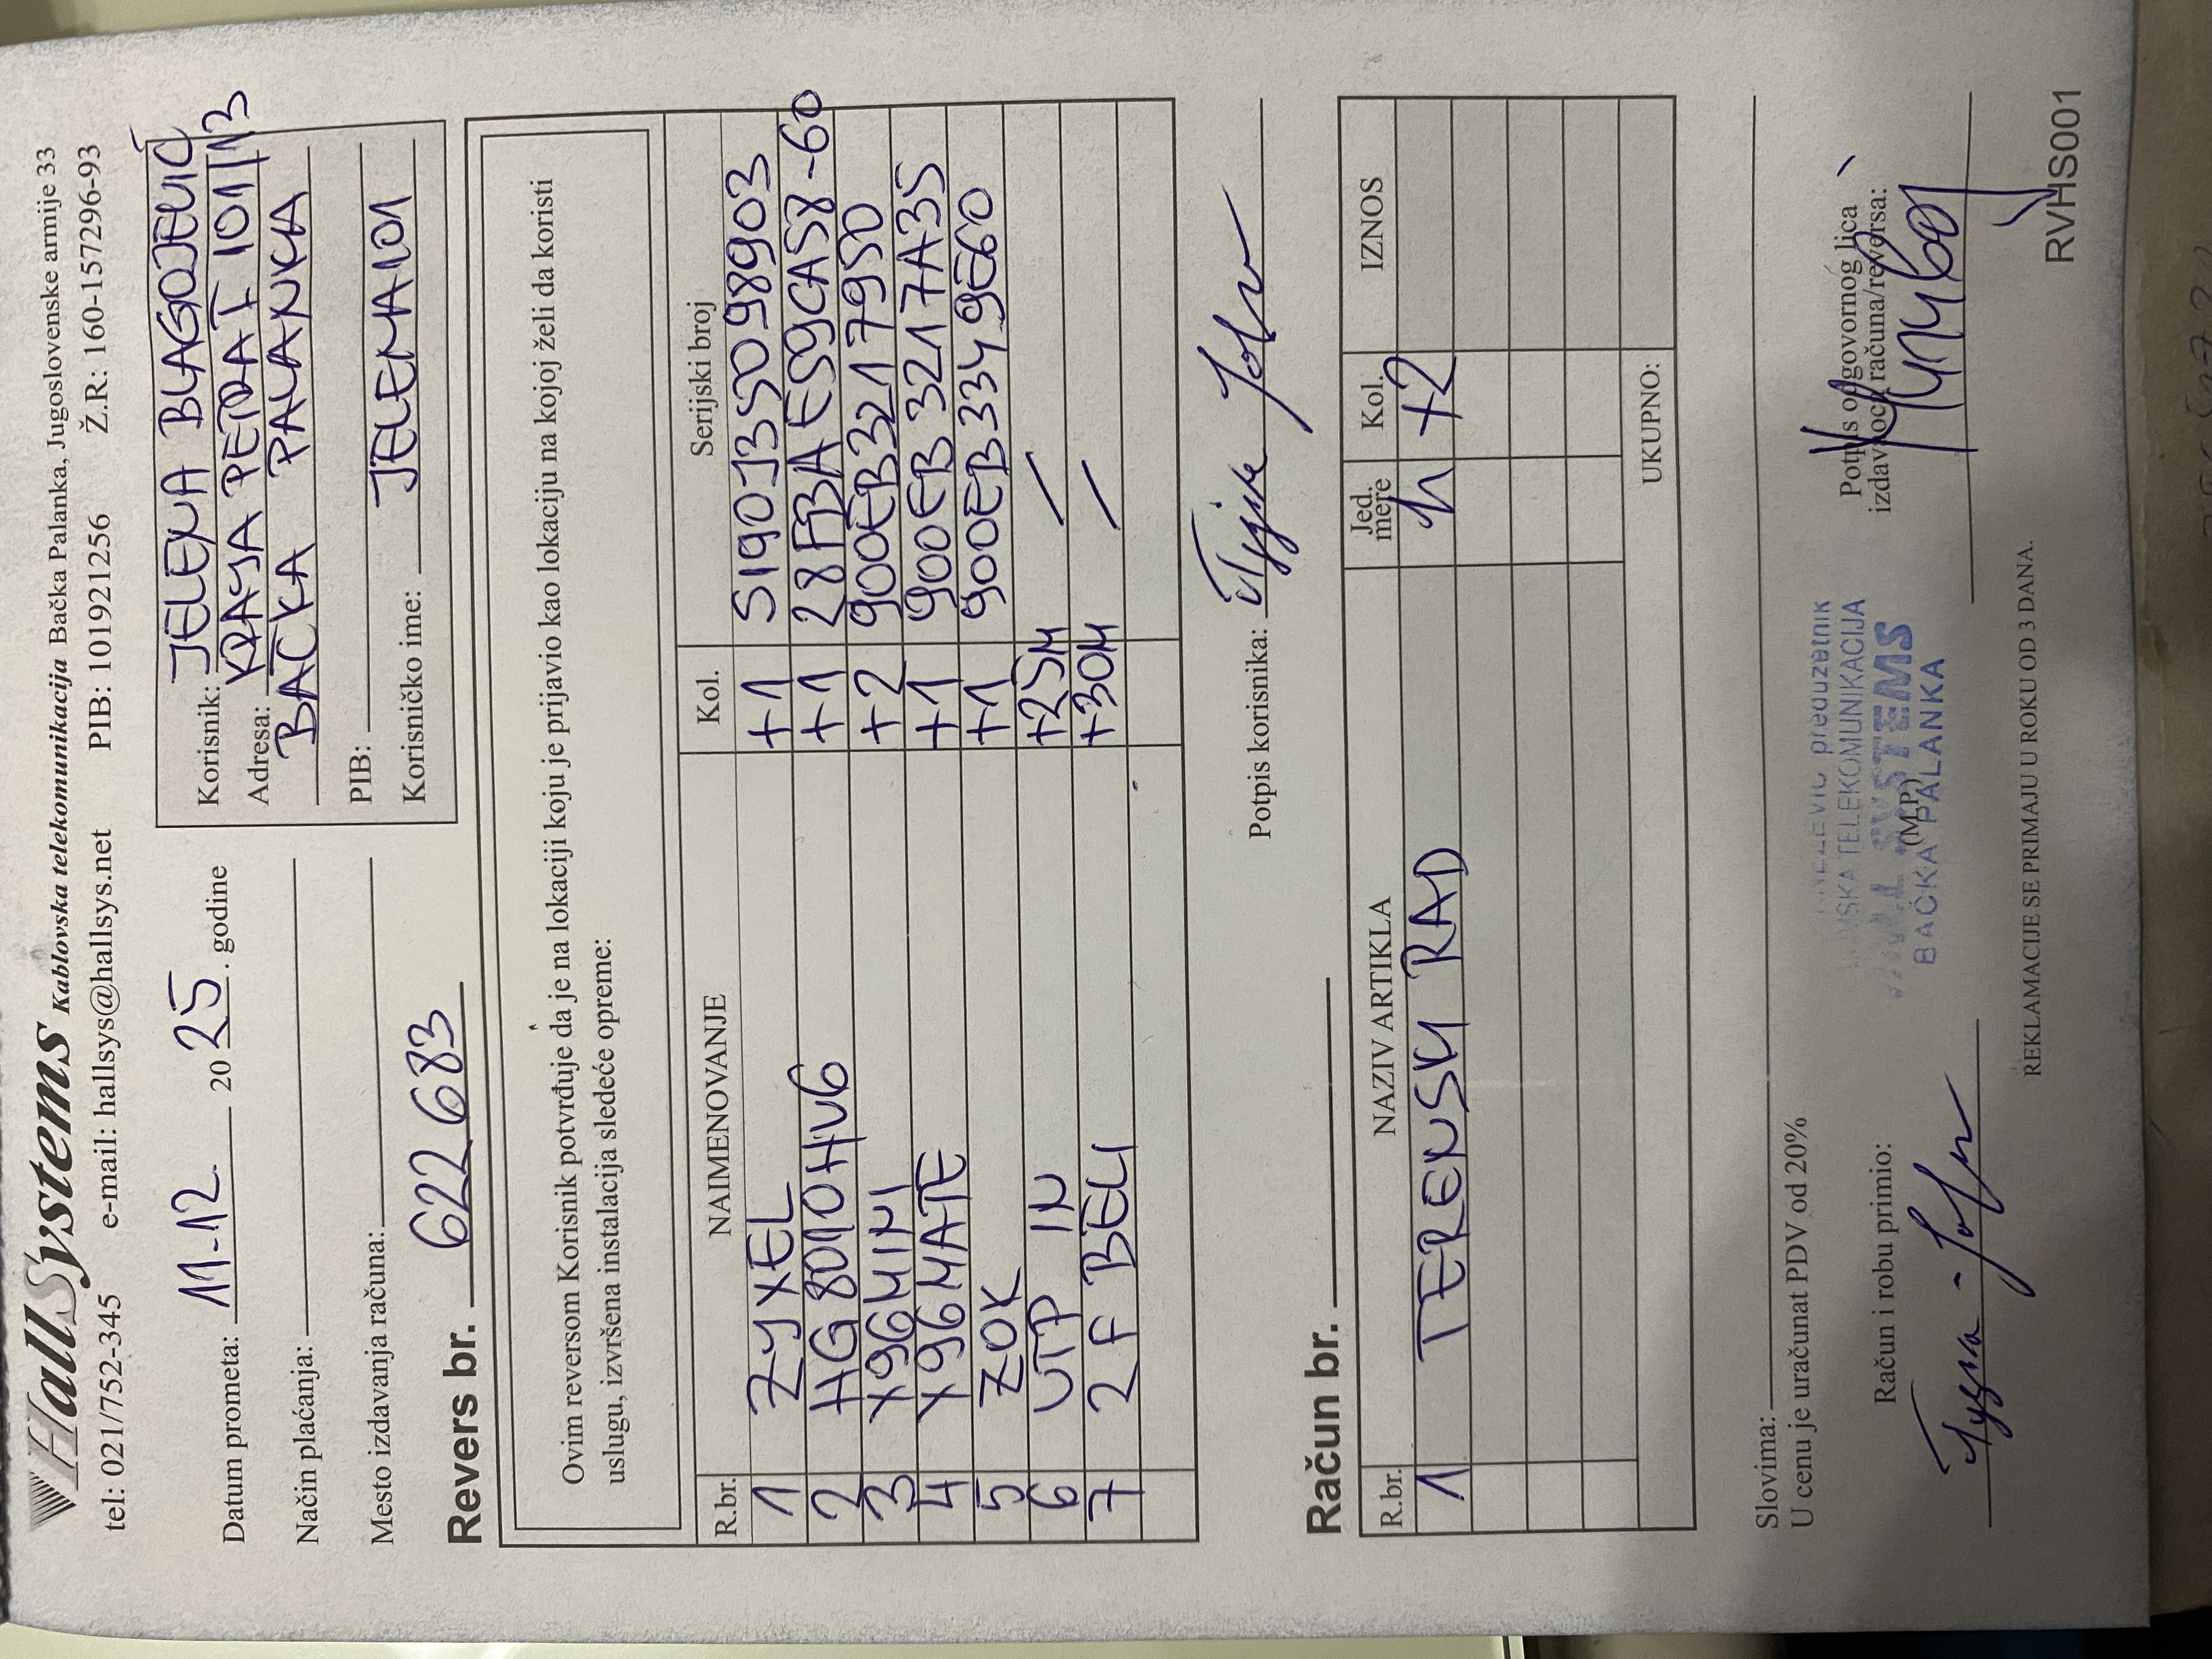 HallSystems Kablovska telekomunikacija Bačka Palanka, Jugoslovenske armije 33
tel: 021/752-345 e-mail: hallsys@hallsys.net PIB: 101921256 Ž.R: 160-157296-93
Datum prometa: 11-12 2025. godine
Način plaćanja:
Mesto izdavanja računa:
Korisnik: JELENA BLAGOJEVIĆ
Adresa: KRALJA PETRA I 101/13
BAČKA PALANKA
PIB:
Korisničko ime: JELENA101
Revers br. 622683
Ovim reversom Korisnik potvrđuje da je na lokaciji koju je prijavio kao lokaciju na kojoj želi da koristi
uslugu, izvršena instalacija sledeće opreme:
R.br. NAIMENOVANJE Kol. Serijski broj
1 ZYXEL +1 S190135098903
2 HG8010HV6 +1 28FBAE59CA58-60
3 X96MINI +2 900EB3217950
4 X96MATE +1 900EB3217A35
5 ZOK +1 900EB3349E60
6 UTP IN +25M /
7 2F BELI +30M /
Potpis korisnika:
Račun br.
R.br. NAZIV ARTIKLA Jed. mere Kol. IZNOS
1 TERENSKI RAD h +2
UKUPNO:
Slovima:
U cenu je uračunat PDV od 20%
Račun i robu primio:
preduzetnik
TELEKOMUNIKACIJA
(M.P.)
BAČKA PALANKA
Potpis odgovornog lica
izdavaoca računa/reversa:
REKLAMACIJE SE PRIMAJU U ROKU OD 3 DANA.
RVHS001